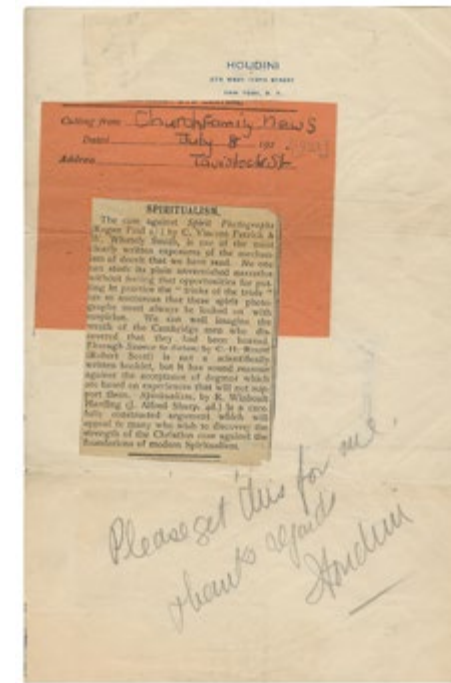 HOUDINI
278 WEST 113TH STREET
NEW YORK, N. Y.
Cutting from Church Family News
Dated July 8 192
Address Tavistock St.
SPIRITUALISM.
The case against Spirit Photographs
(Kegan Paul) by C. Vincent Patrick &
W. Whately Smith, is one of the most
clearly written exposures of the
that we have read. No one
can study its plain unvarnished narrative
without feeling that opportunities for put-
ting in practice the " tricks of the trade "
are so numerous that these spirit photo-
graphs must always be looked on with
suspicion. We can well imagine the
wrath of the Cambridge men who dis-
covered that they had been hoaxed.
Through Séance to Satan, by C. H.
(Robert Scott) is not a scientifically
written booklet, but it has sound reasons
against the acceptance of dogmas which
are based on experiences that will not sup-
port them. Spiritualism, by R.
Harding (J. Alfred Sharp, ) is a care-
fully constructed argument which will
appeal to many who wish to discover the
strength of the Christian case against the
foundations of modern Spiritualism.
Please get this for me.
thanks regards
Houdini